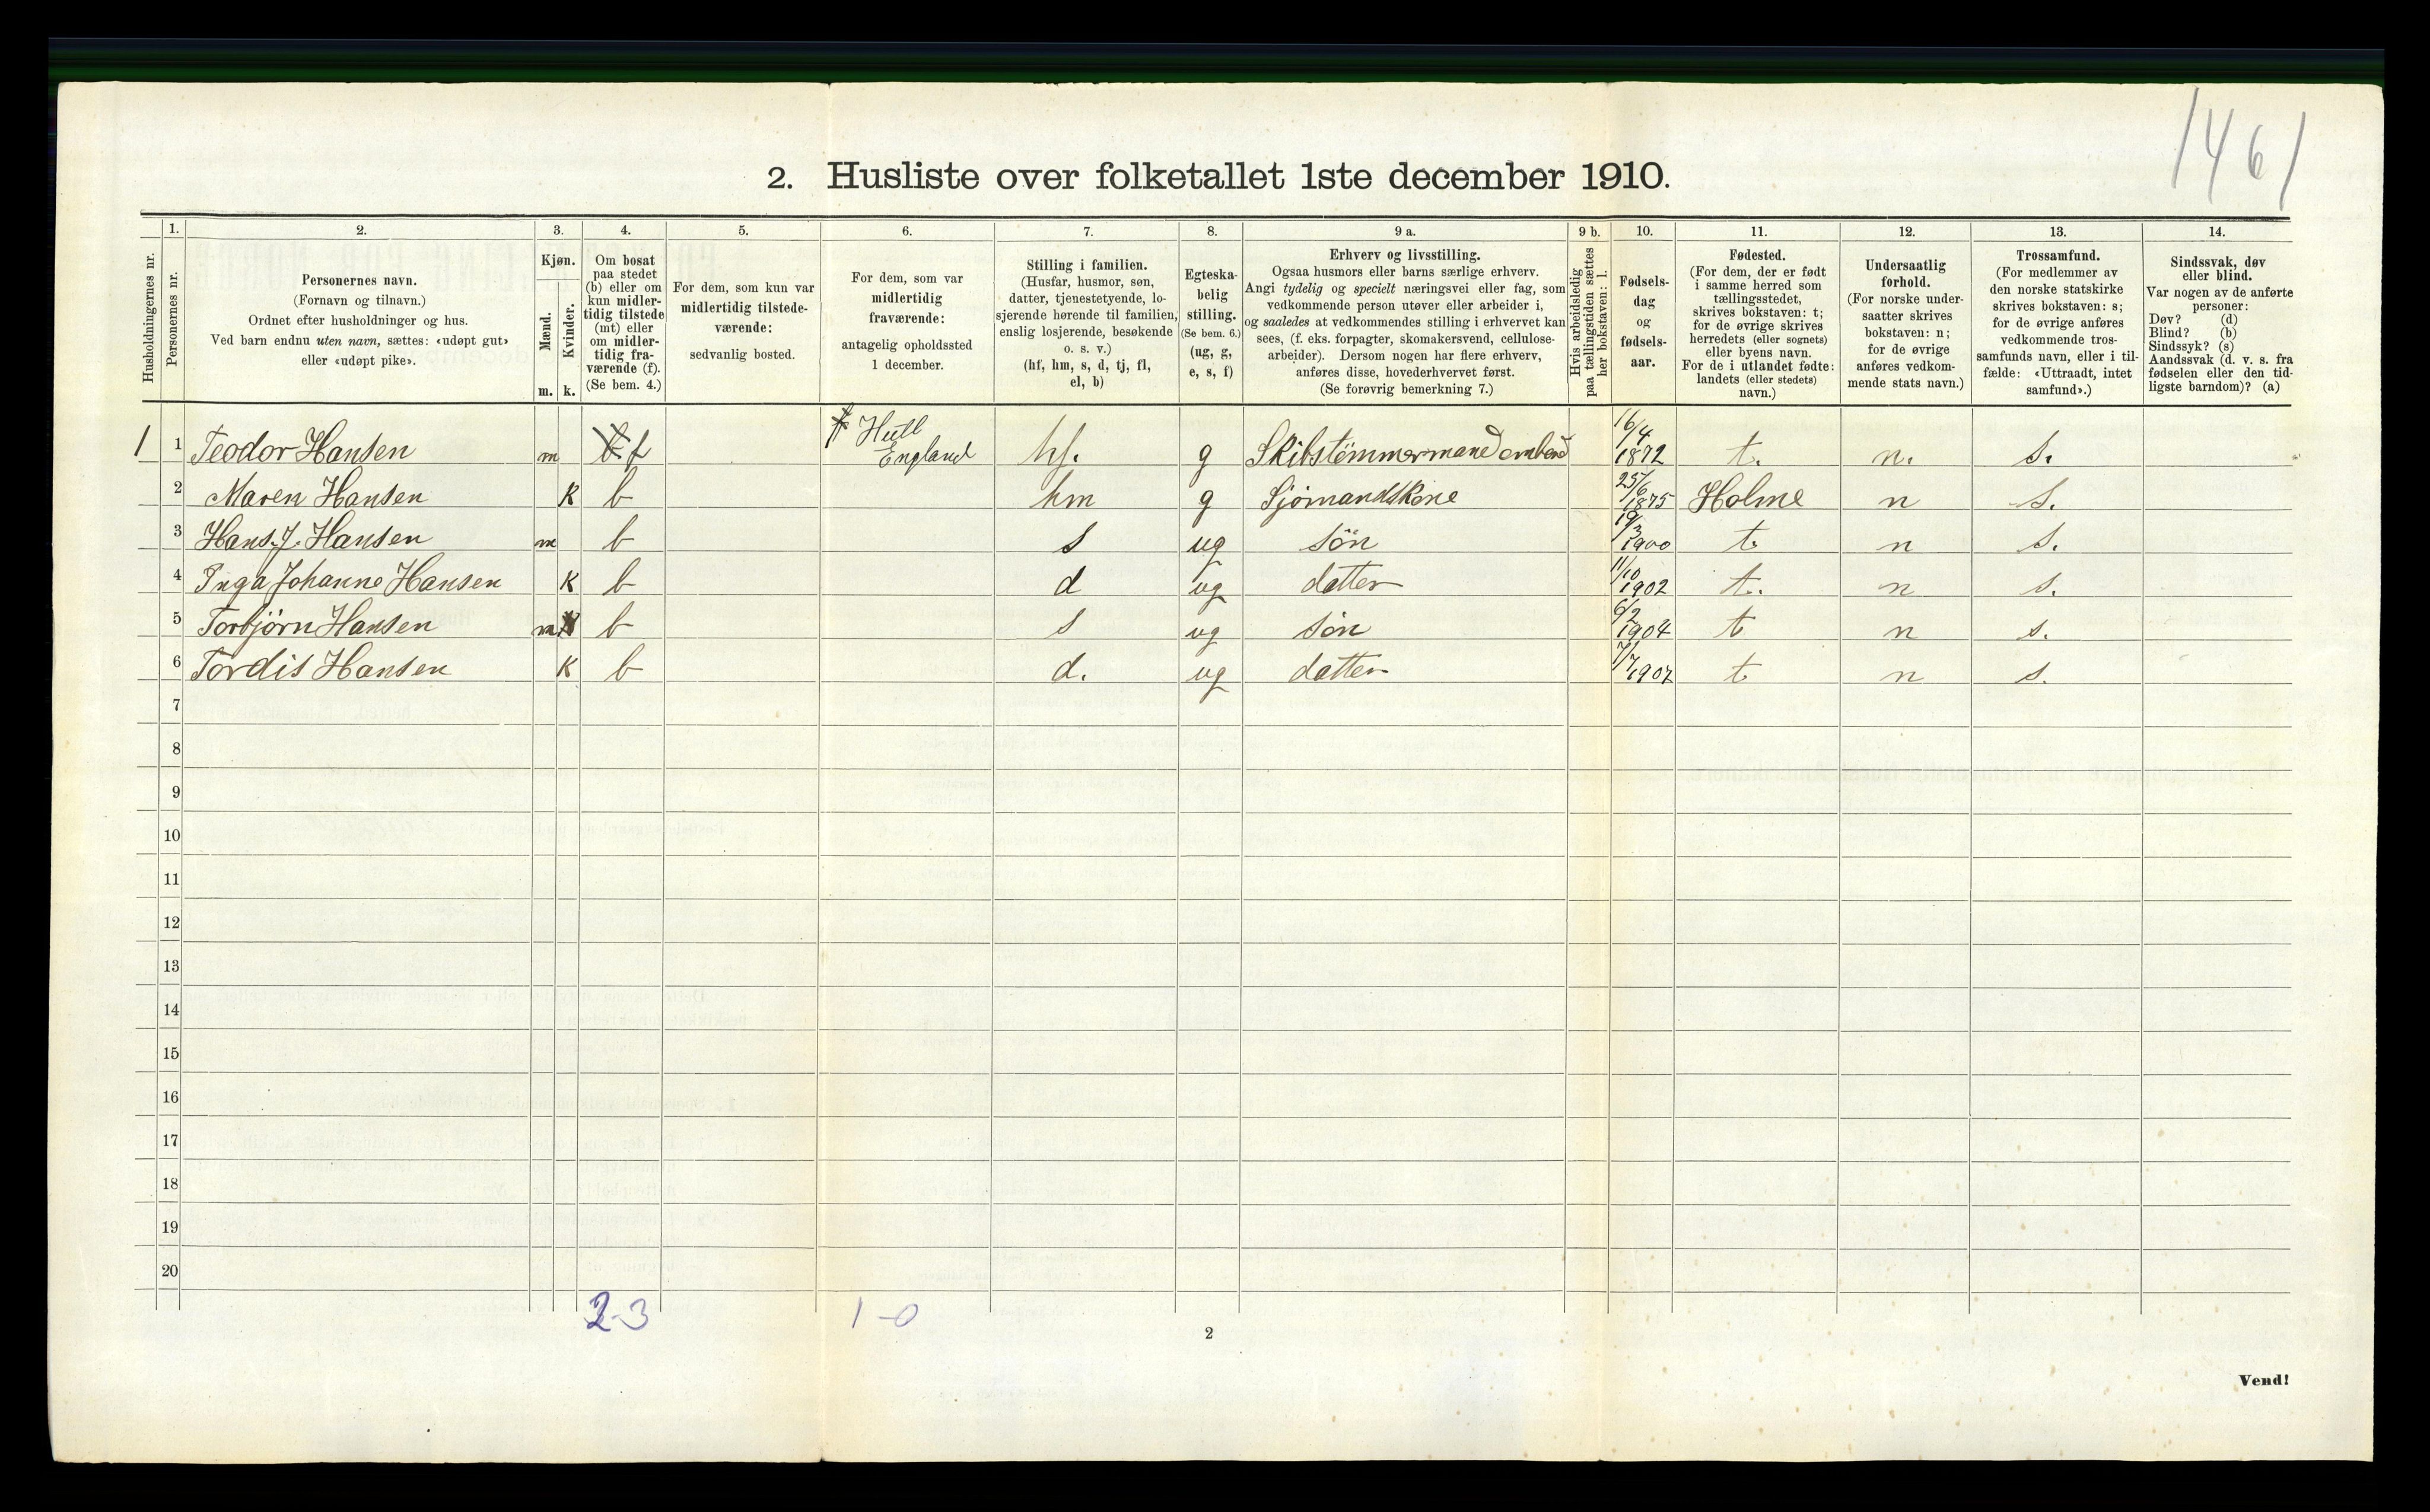 1461
2. Husliste over folketallet 1ste december 1910.
Husholdningernes nr.
1.
Personernes nr.
2.
Personernes navn.
(Fornavn og tilnavn.)
Ordnet efter husholdninger og hus.
Ved barn endnu uten navn, sættes: «udøpt gut»
eller «udøpt pike».
3.
Kjøn.
Mænd.
Kvinder.
m. k.
4.
Om bosat
paa stedet
(b) eller om
kun midler-
tidig tilstede
(mt) eller
om midler-
tidig fra-
værende (f).
(Se bem. 4.)
5.
For dem, som kun var
midlertidig tilstede-
værende:
sedvanlig bosted.
6.
For dem, som var
midlertidig
fraværende:
antagelig opholdssted
1 december.
7.
Stilling i familien.
(Husfar, husmor, søn,
datter, tjenestetyende, lo-
sjerende hørende til familien,
enslig losjerende, besøkende
o. s. v.)
(hf, hm, s, d, tj, fl,
el, b)
8.
Egteska-
belig
stilling.
(Se bem. 6.)
(ug, g,
e, s, f)
9 a.
Erhverv og livsstilling.
Ogsaa husmors eller barns særlige erhverv.
Angi tydelig og specielt næringsvei eller fag, som
vedkommende person utøver eller arbeider i,
og saaledes at vedkommendes stilling i erhvervet kan
sees, (f. eks. forpagter, skomakersvend, cellulose-
arbeider). Dersom nogen har flere erhverv,
anføres disse, hovederhvervet først.
(Se forøvrig bemerkning 7.)
9 b.
Hvis arbeidsledig
paa tællingstiden sættes
her bokstaven: l.
10.
Fødsels-
dag
og
fødsels-
aar.
11.
Fødested.
(For dem, der er født
i samme herred som
tællingsstedet,
skrives bokstaven: t;
for de øvrige skrives
herredets (eller sognets)
eller byens navn.
For de i utlandet fødte:
landets (eller stedets)
navn.)
12.
Undersaatlig
forhold.
(For norske under-
saatter skrives
bokstaven: n;
for de øvrige
anføres vedkom-
mende stats navn.)
13.
Trossamfund.
(For medlemmer av
den norske statskirke
skrives bokstaven: s;
for de øvrige anføres
vedkommende tros-
samfunds navn, eller i til-
fælde: «Uttraadt, intet
samfund».)
14.
Sindssvak, døv
eller blind.
Var nogen av de anførte
personer:
Døv? (d)
Blind? (b)
Sindssyk? (s)
Aandssvak (d. v. s. fra
fødselen eller den tid-
ligste barndom)? (a)
1 1 Teodor Hansen m b f Hull England hf. g Skibstømmermand ombord 16/4 1872 t. n. s.
2 Maren Hansen k b hm g Sjømandskone 25/6 1875 Holme n s.
3 Hans. J. Hansen m b s ug søn 19/3 1900 t n s.
4 Inga Johanne Hansen k b d ug datter 11/10 1902 t. n s.
5 Torbjørn Hansen m b s ug søn 6/2 1904 t n s.
6 Tordis Hansen k b d. ug datter 7/7 1907 t n s.
7
8
9
10
11
12
13
14
15
16
17
18
19
20
2-3 1-0
2
Vend!